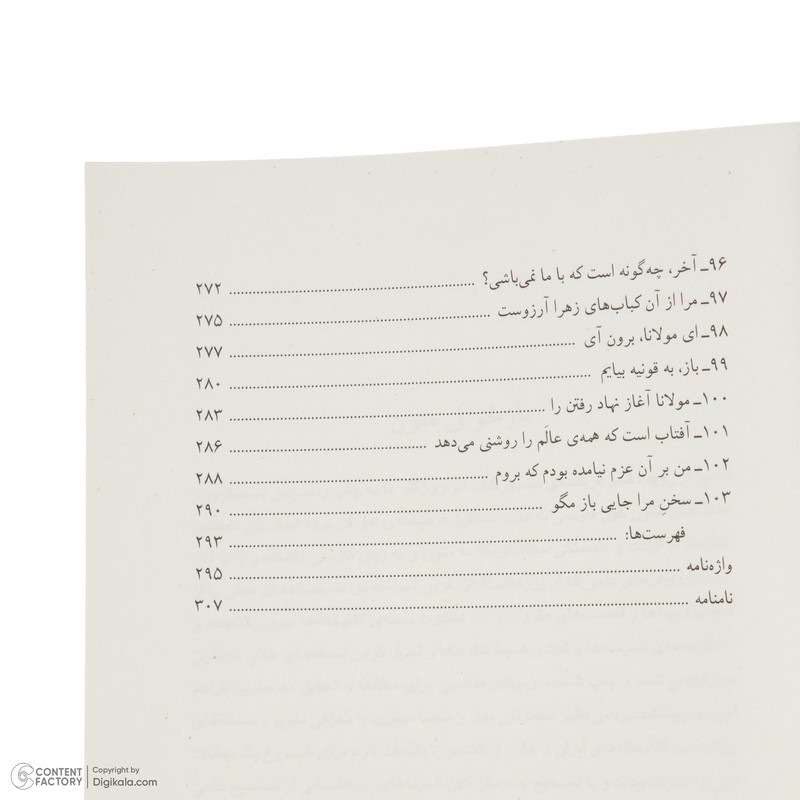 ۹۶ـ آخر، چه‌گونه است که با ما نمی‌باشی؟ ........ ۲۷۲
۹۷ـ مرا از آن کباب‌های زهرا آرزوست ........ ۲۷۵
۹۸ـ ای مولانا، برون آی ........ ۲۷۷
۹۹ـ باز، به قونیه بیایم ........ ۲۸۰
۱۰۰ـ مولانا آغاز نهاد رفتن را ........ ۲۸۳
۱۰۱ـ آفتاب است که همه‌ی عالَم را روشنی می‌دهد ........ ۲۸۶
۱۰۲ـ من بر آن عزم نیامده بودم که بروم ........ ۲۸۸
۱۰۳ـ سخنِ مرا جایی باز مگو ........ ۲۹۰
فهرست‌ها: ........ ۲۹۳
واژه‌نامه ........ ۲۹۵
نامنامه ........ ۳۰۷
CONTENT FACTORY | Copyright by Digikala.com